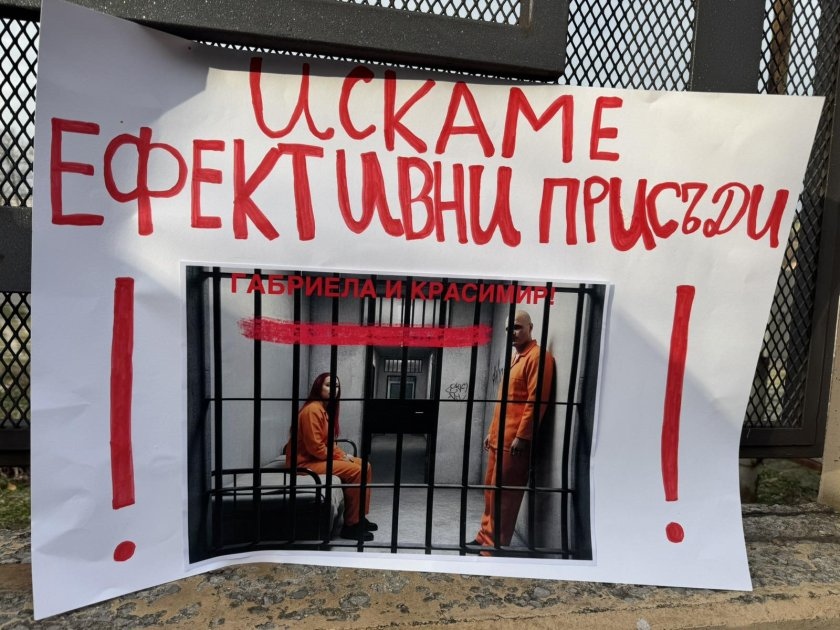 ИСКАМЕ
ЕФЕКТИВНИ ПРИСЪДИ
! !
ГАБРИЕЛА И КРАСИМИР!